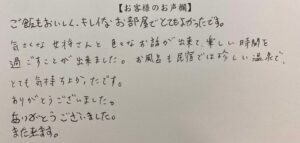 【お客様のお声欄】
ご飯もおいしく、キレイなお部屋でとてもよかったです。
気さくな女将さんと色々なお話が出来て、楽しい時間を
過ごすことが出来ました。お風呂も民宿では珍しい温泉で、
とても気持ちよかったです。
ありがとうございました。
ありがとうございました。
また来ます。